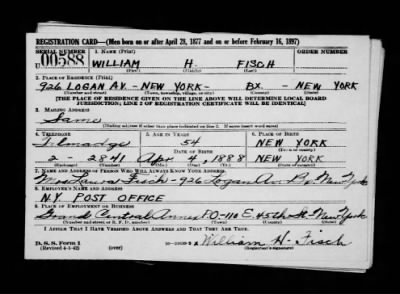 REGISTRATION CARD—(Men born on or after April 28, 1877 and on or before February 16, 1897)
SERIAL NUMBER
1. NAME (Print)
ORDER NUMBER
U00588
WILLIAM H. FISCH
(First) (Middle) (Last)
2. PLACE OF RESIDENCE (Print)
926 LOGAN AV. - NEW YORK - BX. - NEW YORK
(Number and street) (Town, township, village, or city) (County) (State)
[THE PLACE OF RESIDENCE GIVEN ON THE LINE ABOVE WILL DETERMINE LOCAL BOARD
JURISDICTION; LINE 2 OF REGISTRATION CERTIFICATE WILL BE IDENTICAL]
3. MAILING ADDRESS
Same
[Mailing address if other than place indicated on line 2. If same insert word same]
4. TELEPHONE
5. AGE IN YEARS
6. PLACE OF BIRTH
Talmadge
54
NEW YORK
DATE OF BIRTH
2 2841 Apr. 4, 1888 NEW YORK
7. NAME AND ADDRESS OF PERSON WHO WILL ALWAYS KNOW YOUR ADDRESS
Fisch - 926 Logan Av. Bx. New York
8. EMPLOYER'S NAME AND ADDRESS
N.Y. POST OFFICE
9. PLACE OF EMPLOYMENT OR BUSINESS
Grand Central Annex P.O - 110 E. 45th St. New York
(Number and street or R. F. D. number) (Town) (County) (State)
I AFFIRM THAT I HAVE VERIFIED ABOVE ANSWERS AND THAT THEY ARE TRUE.
D. S. S. Form 1
(Revised 4-1-42)
William H. Fisch
(Registrant's signature)